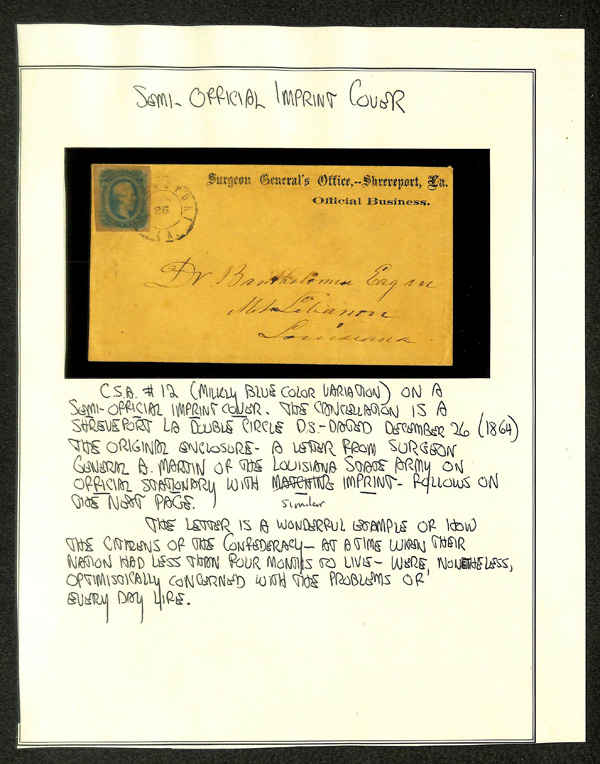 SEMI-OFFICIAL IMPRINT COVER
Surgeon General's Office,--Shreveport, La.
Official Business.
26
Dr Bartholomew Eagan
Mt Lebanon
Louisiana
C.S.A. #12 (MILKY BLUE COLOR VARIATION) ON A
SEMI-OFFICIAL IMPRINT COVER. THE CANCELLATION IS A
SHREVEPORT LA DOUBLE CIRCLE D.S.-DATED DECEMBER 26 (1864)
THE ORIGINAL ENCLOSURE- A LETTER FROM SURGEON
GENERAL A. MARTIN OF THE LOUISIANA STATE ARMY ON
OFFICIAL STATIONARY WITH MATCHING IMPRINT- FOLLOWS ON
THE NEXT PAGE. similar
THE LETTER IS A WONDERFUL EXAMPLE OF HOW
THE CITIZENS OF THE CONFEDERACY- AT A TIME WHEN THEIR
NATION HAD LESS THAN FOUR MONTHS TO LIVE- WERE, NONETHELESS,
OPTIMISTICALLY CONCERNED WITH THE PROBLEMS OF
EVERY DAY LIFE.